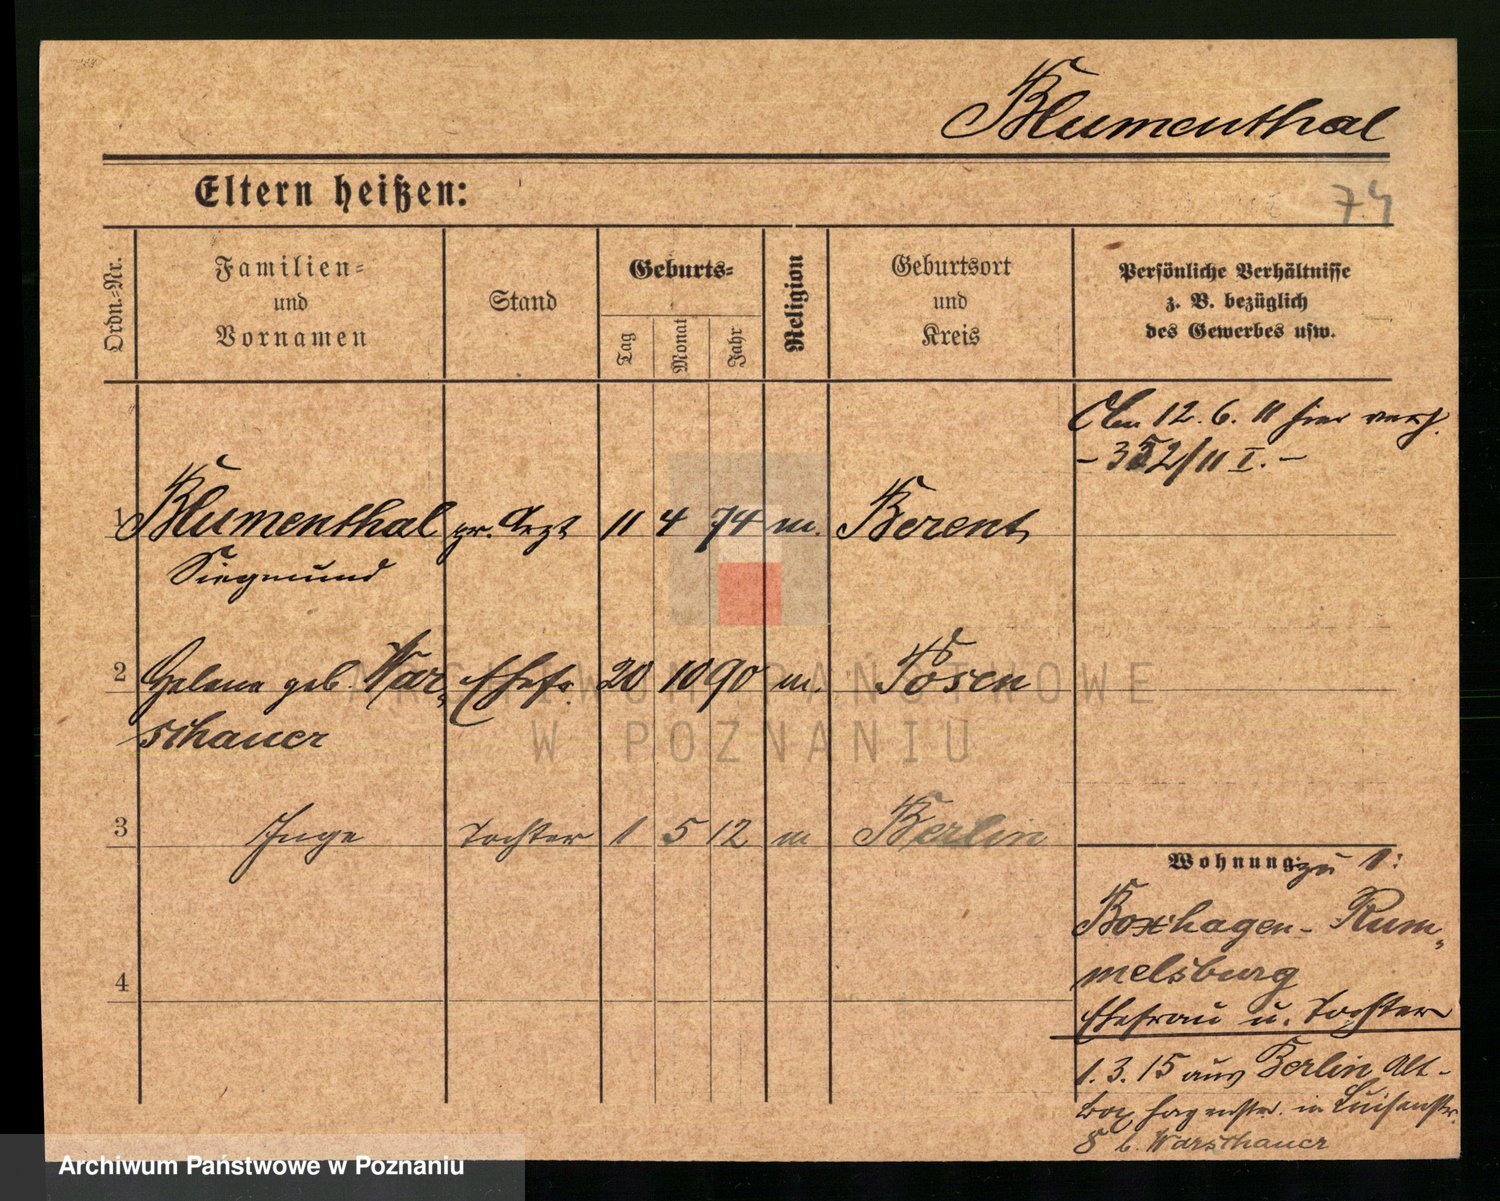 Blumenthal
Eltern heißen:
74
Ordn.=Nr.
Familien=
und
Vornamen
Stand
Geburts=
Tag
Monat
Jahr
Religion
Geburtsort
und
Kreis
Persönliche Verhältnisse
z. B. bezüglich
des Gewerbes usw.
Am 12. 6. 11 hier verh.
- 352/11 I. -
1 Blumenthal pr. Arzt 11 4 74 m. Berent
Siegmund
2 Helene geb. War= Ehefr. 20 10 90 m. Posen
schauer
3 Inge Tochter 1 5 12 m Berlin
Wohnung: zu 1:
Boxhagen- Rum=
melsburg
4
Ehefrau u. Tochter
1. 3. 15 aus Berlin Alt-
boxhagenstr. in Luisenstr.
8 b. Warschauer
ARCHIWUM PAŃSTWOWE
W POZNANIU
Archiwum Państwowe w Poznaniu